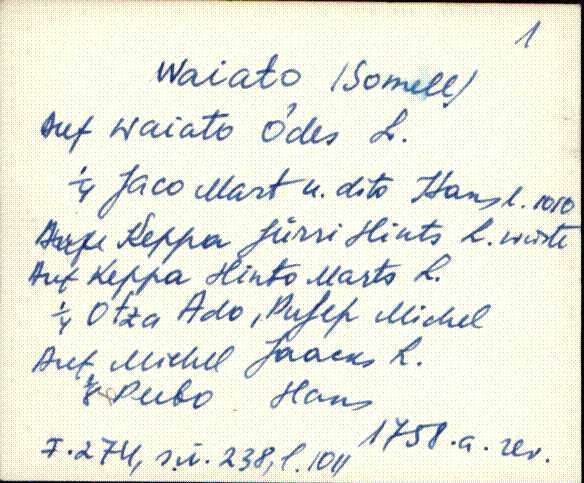 1
Waiato (Somell)
Auf Waiato Ödes L.
1/4 Jaco Mart u. dito Hans l. 1010
Auf Keppa Jürri Hints L. wüste
Auf Keppa Hinto Marts L.
1/4 Otza Ado, Pusep Michel
Auf Michel Jaacks L.
1/8 Peebo Hans
1758. a. rev.
F. 274, s.ü. 238, l. 1011